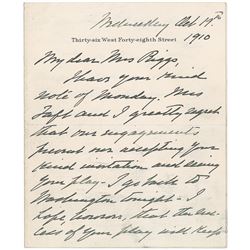 Wednesday Oct 19th
Thirty-six West Forty-eighth Street
1910
My dear Mrs Riggs,
I have your kind
note of Monday. Mrs
Taft and I greatly regret
that our engagements
prevent our accepting your
kind invitation and seeing
your play. I go back to
Washington tonight. I
hope, however, that the suc-
cess of your play will keep